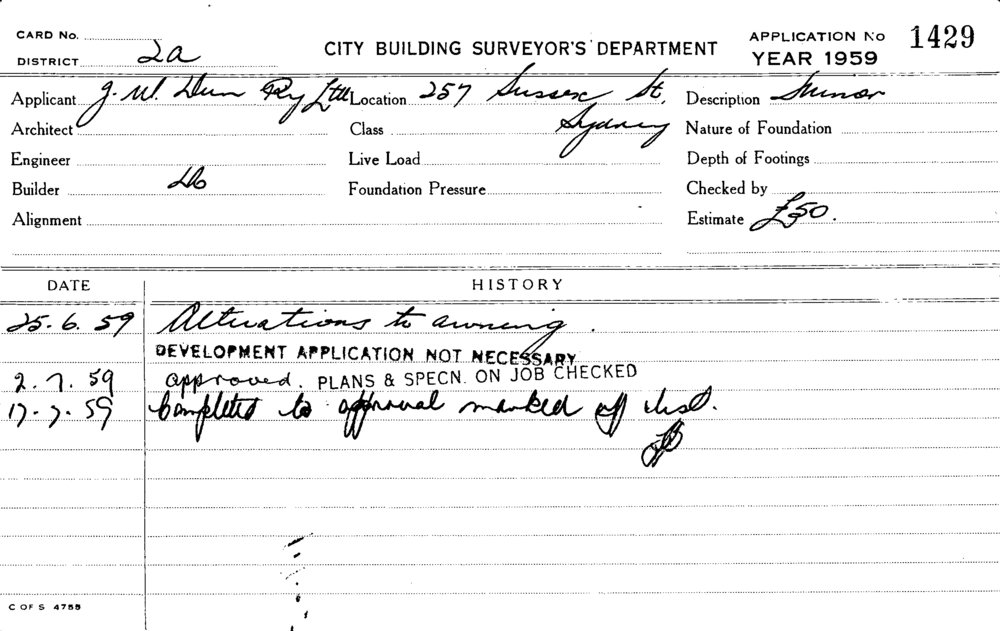 CARD No.
DISTRICT 2a
CITY BUILDING SURVEYOR'S DEPARTMENT
APPLICATION No 1429
YEAR 1959
Applicant J. W. Dunn Pty Ltd Location 257 Sussex St, Description Minor
Architect Class Sydney Nature of Foundation
Engineer Live Load Depth of Footings
Builder Do Foundation Pressure Checked by
Alignment Estimate £50.
DATE HISTORY
25.6.59 Alterations to awning.
DEVELOPMENT APPLICATION NOT NECESSARY
2.7.59 approved. PLANS & SPECN. ON JOB CHECKED
17.7.59 Completed to approval marked off list.
C OF S 4755